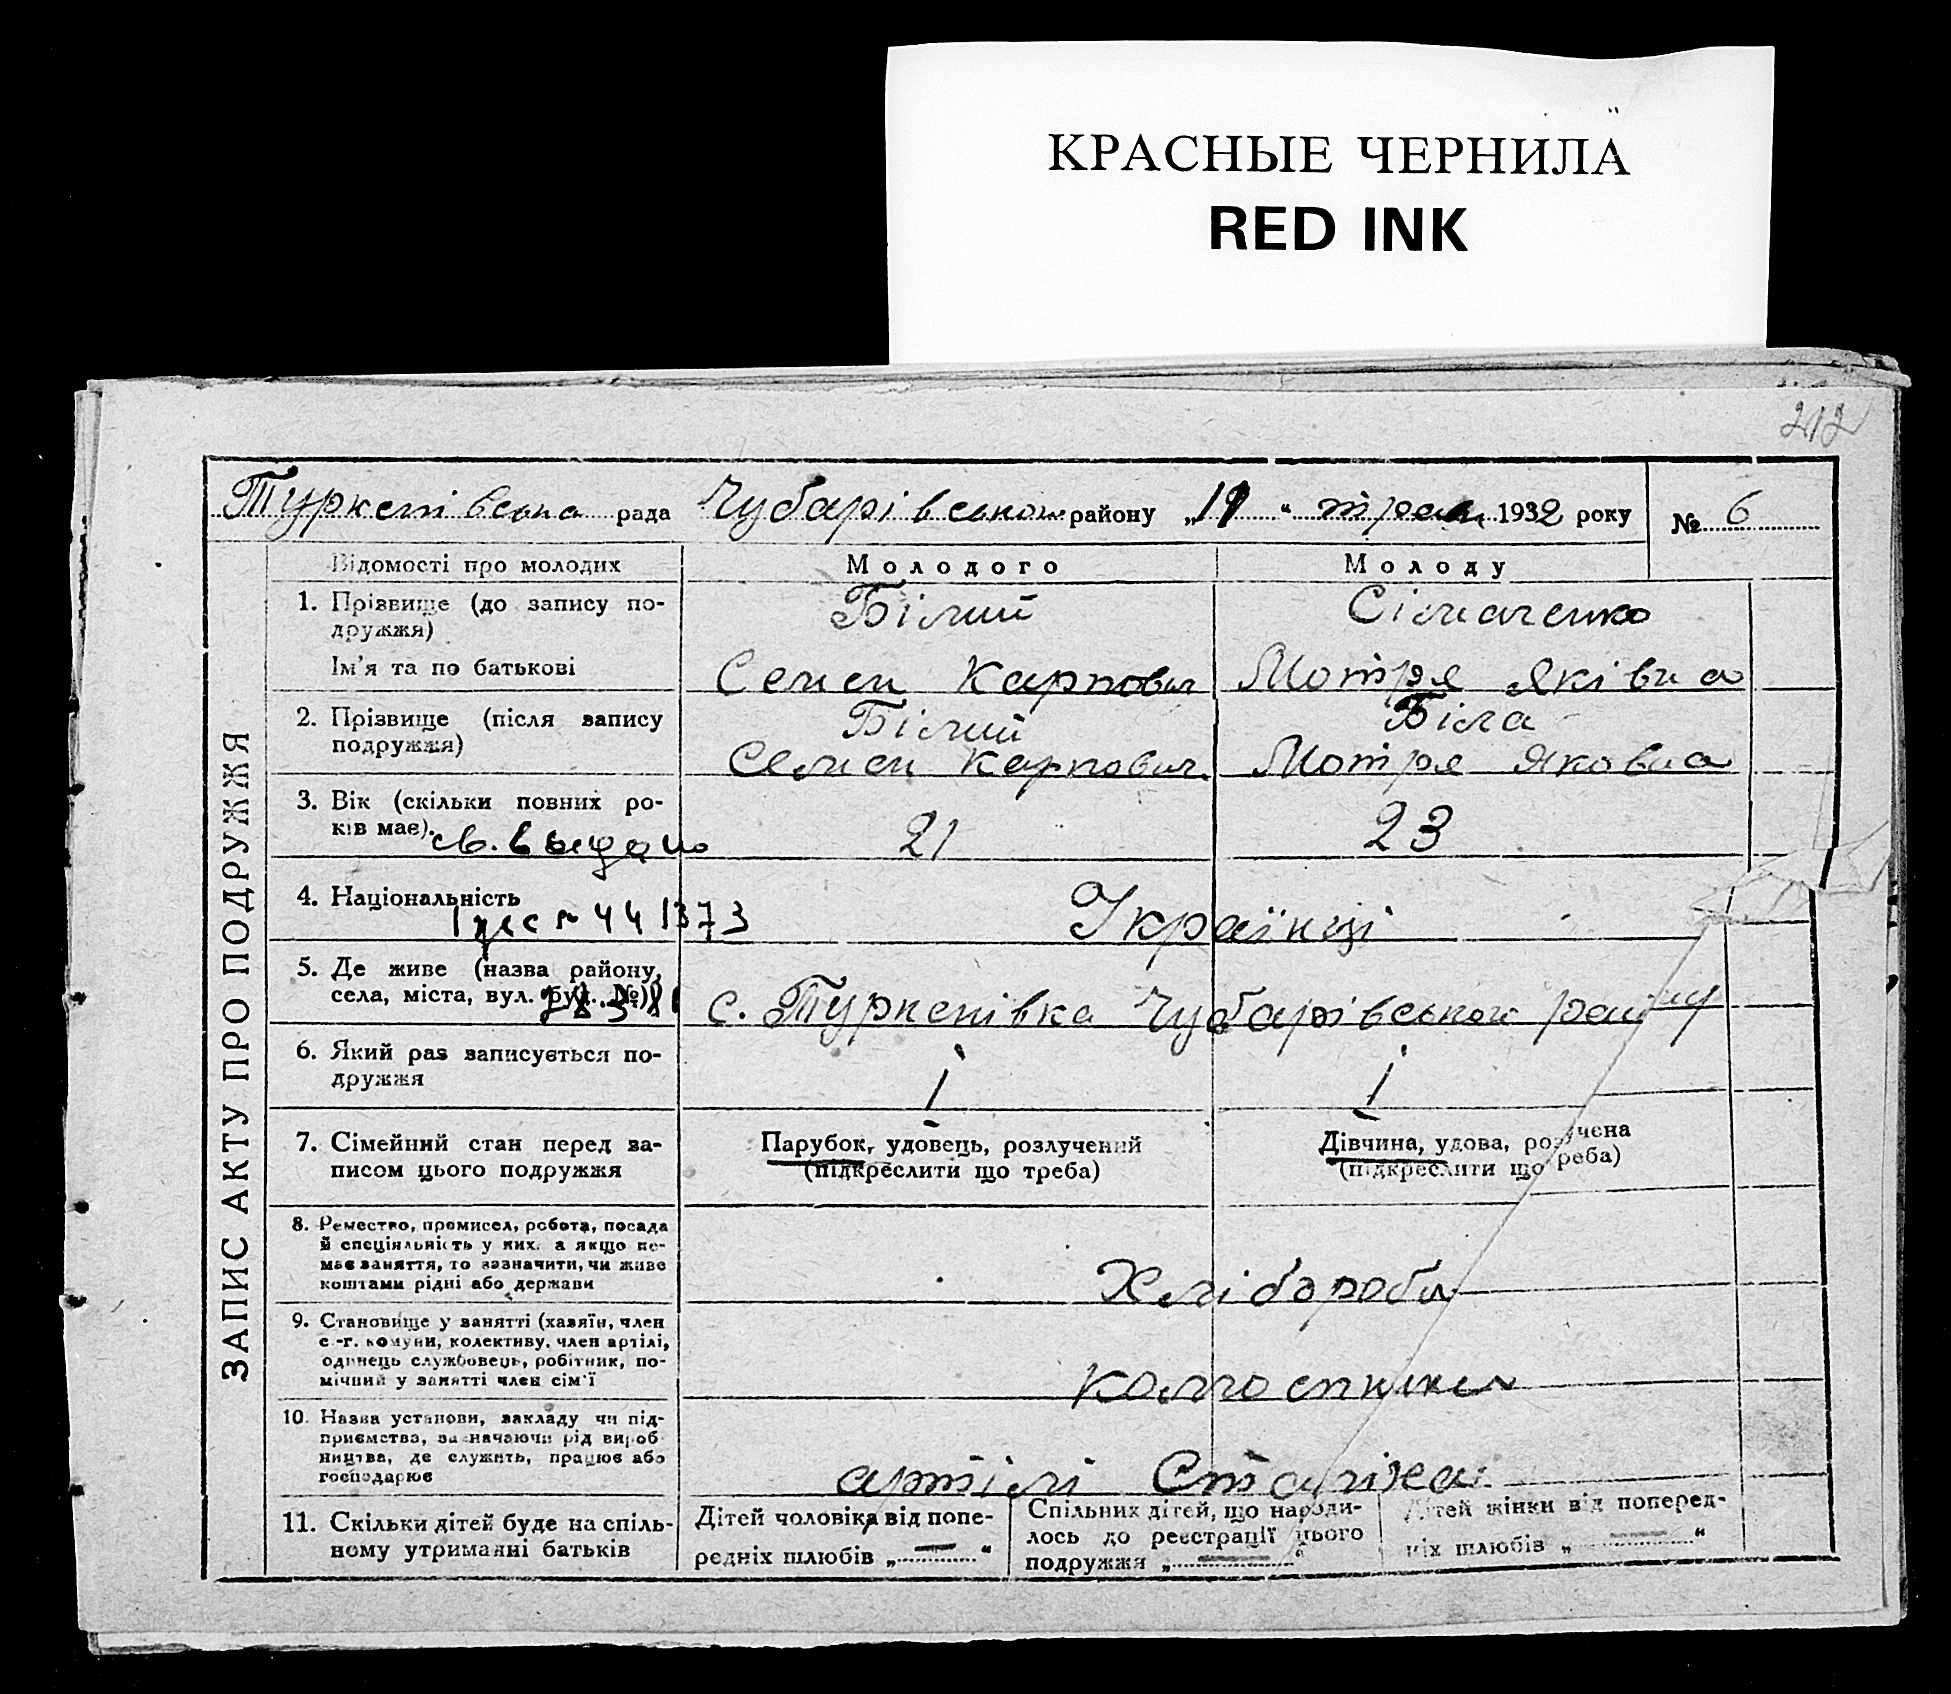 КРАСНЫЕ ЧЕРНИЛА
RED INK
212
Туркенівська рада Чубарівського району „19“ трав 1932 року № 6
ЗАПИС АКТУ ПРО ПОДРУЖЖЯ
Відомості про молодих Молодого Молоду
1. Прізвище (до запису по- Білий Сімаченко
дружжя)
Ім'я та по батькові Семен Карпович Мотря Яківна
2. Прізвище (після запису Білий Біла
подружжя) Семен Карпович Мотря Яковна
3. Вік (скільки повних ро- 21 23
ків має).
св. выдано
4. Національність Українці
441373
5. Де живе (назва району,
села, міста, вул. буд. №) с. Туркенівка Чубарівського району
6. Який раз записується по- 1 1
дружжя
7. Сімейний стан перед за- Парубок, удовець, розлучений Дівчина, удова, розлучена
писом цього подружжя (підкреслити що треба) (підкреслити що треба)
8. Ремество, промисел, робота, посада
й спеціяльність у них, а якщо не-
має заняття, то зазначити, чи живе Хлібороби
коштами рідні або держави
9. Становище у занятті (хазяїн, член
с.-г. комуни, колективу, член артілі,
одинець службовець, робітник, по- колгоспники
мічний у занятті член сім'ї
10. Назва установи, закладу чи під-
приємства, зазначаючи рід вироб-
ництва, де служить, працює або артілі
господарює
11. Скільки дітей буде на спіль- Дітей чоловіка від попе- Спільних дітей, що народи- Дітей жінки від поперед-
ному утриманні батьків редніх шлюбів „—“ лось до реєстрації цього ніх шлюбів „—“
подружжя „—“